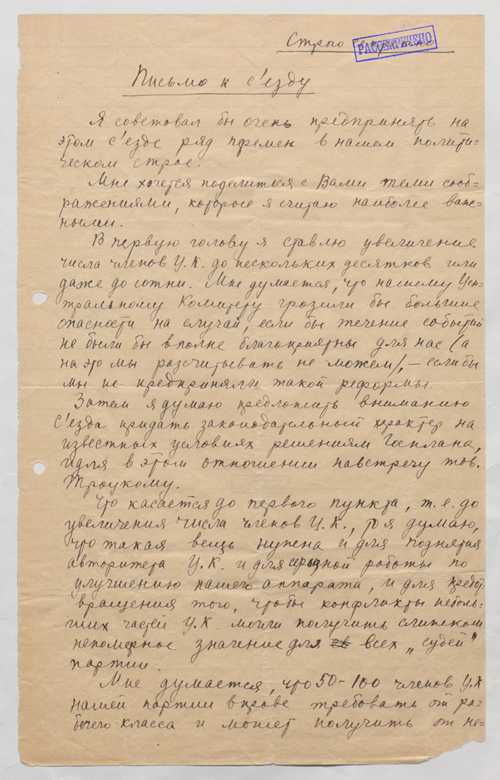 Строго
РАССЕКРЕЧЕНО
Письмо к с'езду
Я советовал бы очень предпринять на
этом с'езде ряд перемен в нашем полити-
ческом строе.
Мне хочется поделиться с Вами теми сооб-
ражениями, которые я считаю наиболее важ-
ными.
В первую голову я ставлю увеличение
числа членов Ц.К. до нескольких десятков или
даже до сотни. Мне думается, что нашему Цен-
тральному Комитету грозили бы большие
опасности на случай, если бы течение событий
не были бы вполне благоприятны для нас (а
на это мы рассчитывать не можем), – если бы
мы не предприняли такой реформы.
Затем я думаю предложить вниманию
с'езда придать законодательный характер на
известных условиях решениям Госплана,
идя в этом отношении навстречу тов.
Троцкому.
Что касается до первого пункта, т.е. до
увеличения числа членов Ц.К., то я думаю,
что такая вещь нужна и для поднятия
авторитета Ц.К. и для серьезной работы по
улучшению нашего аппарата, и для предот-
вращения того, чтобы конфликты неболь-
ших частей Ц.К. могли получить слишком
непомерное значение для всех „судеб"
партии.
Мне думается, что 50-100 членов Ц.К.
наша партия вправе требовать от ра-
бочего класса и может получить от не-